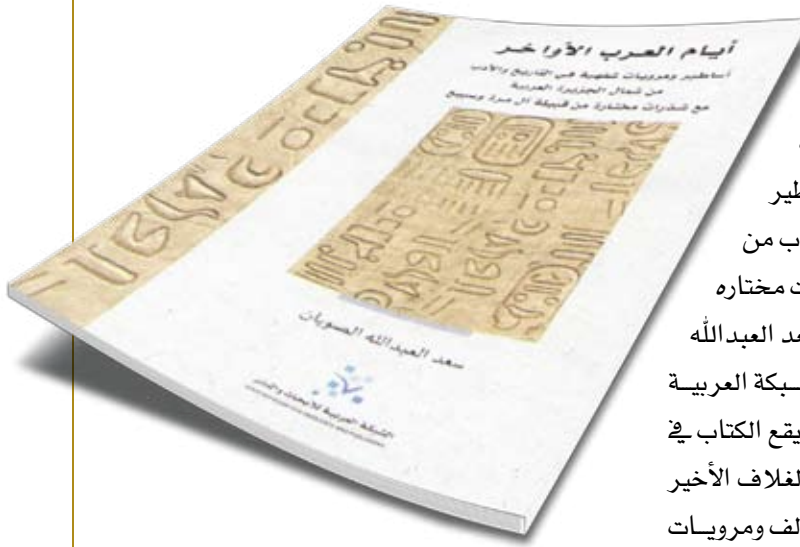 أيام العرب الأواخر
أساطير ومرويات شفهية في التاريخ والأدب
من شمال الجزيرة العربية
مع شذرات مختارة من قبيلة آل مرة وسبيع
سعد العبدالله الصويان
الشبكة العربية للأبحاث والنشر
طير
ب من
ت مختاره
عد العبدالله
ـبكة العربيـة
يقع الكتاب في
لغلاف الأخير
لف ومرويـات